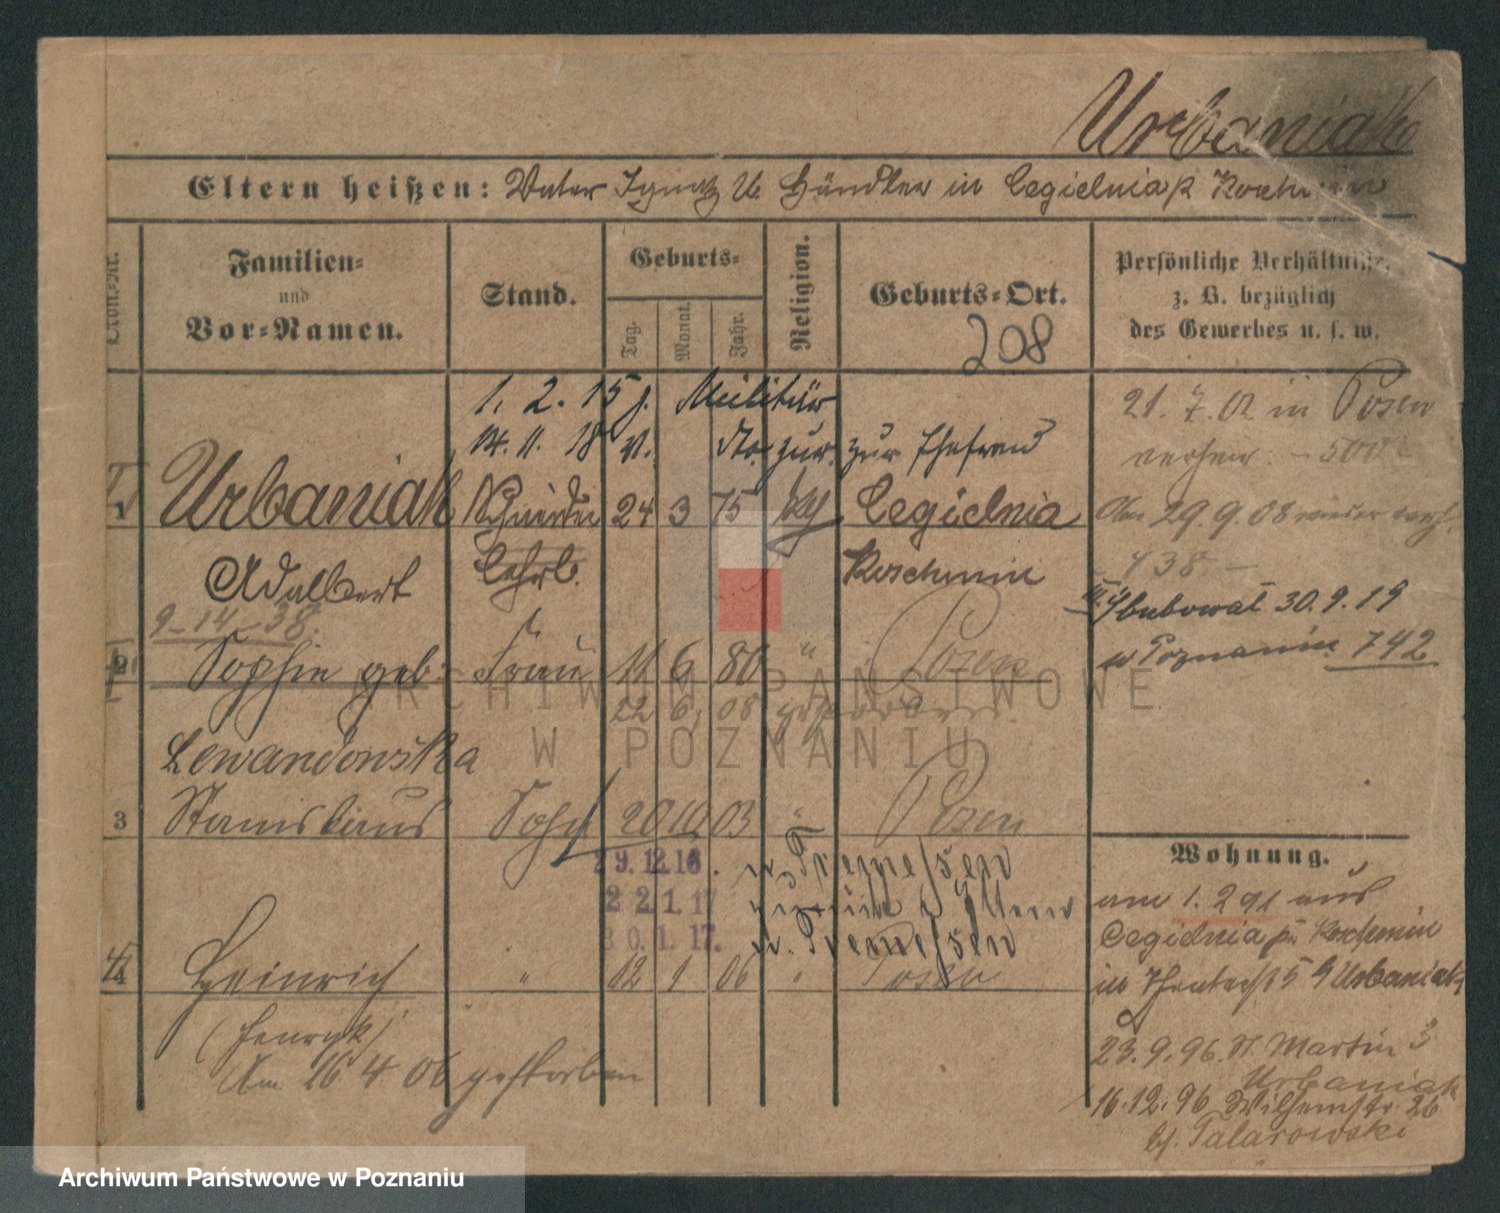 Urbaniak
Eltern heißen: Vater Ignatz U. Händler in Cegielnia p Koschmin
Familien=
und
Vor=Namen.
Stand.
Geburts=
Tag.
Monat.
Jahr.
Religion.
Geburts=Ort.
208
Persönliche Verhältnisse,
z. B. bezüglich
des Gewerbes u. s. w.
1. 2. 15 z. Militär
14. 11. 18 v. dto. zur. zur Ehefrau
21. 7. 02 in Posen
verheir. - 500
1 Urbaniak Schneider 24 3 75 Cegielnia
Am 29. 9. 08 wieder verh.
Adalbert Lehrl. Koschmin
438
9-14-38.
ślubował 30.9.19
w Poznaniu 742
2 Sophie geb. Frau 11 6 80 " Posen
22 6. 08 gestorben.
Lewandowska
3 Stanislaus Sohn 20 10 03 " Posen
29.12.16. n. Tremessen
22 1.17 zurück
30.1.17. n. Tremessen
4 Heinrich " 12 1 06 " Posen
(Henryk)
Am 16 4 06 gestorben
Wohnung.
am 1. 2 91 aus
Cegielnia p. Koschmin
in 5 Urbaniak
23. 9. 96. St. Martin 3
Urbaniak
16.12.96 Wilhelmstr. 26
bf. Talarowski
ARCHIWUM PAŃSTWOWE
W POZNANIU
Archiwum Państwowe w Poznaniu